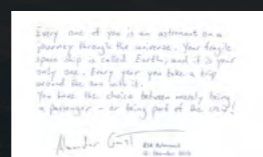 Every one of you is an astronaut on a
journey through the universe. Your fragile
space ship is called Earth, and it is your
only one. Every year you take a trip
around the sun with it.
You have the choice between merely being
a passenger – or being part of the crew!
Alexander Gerst
ESA Astronaut